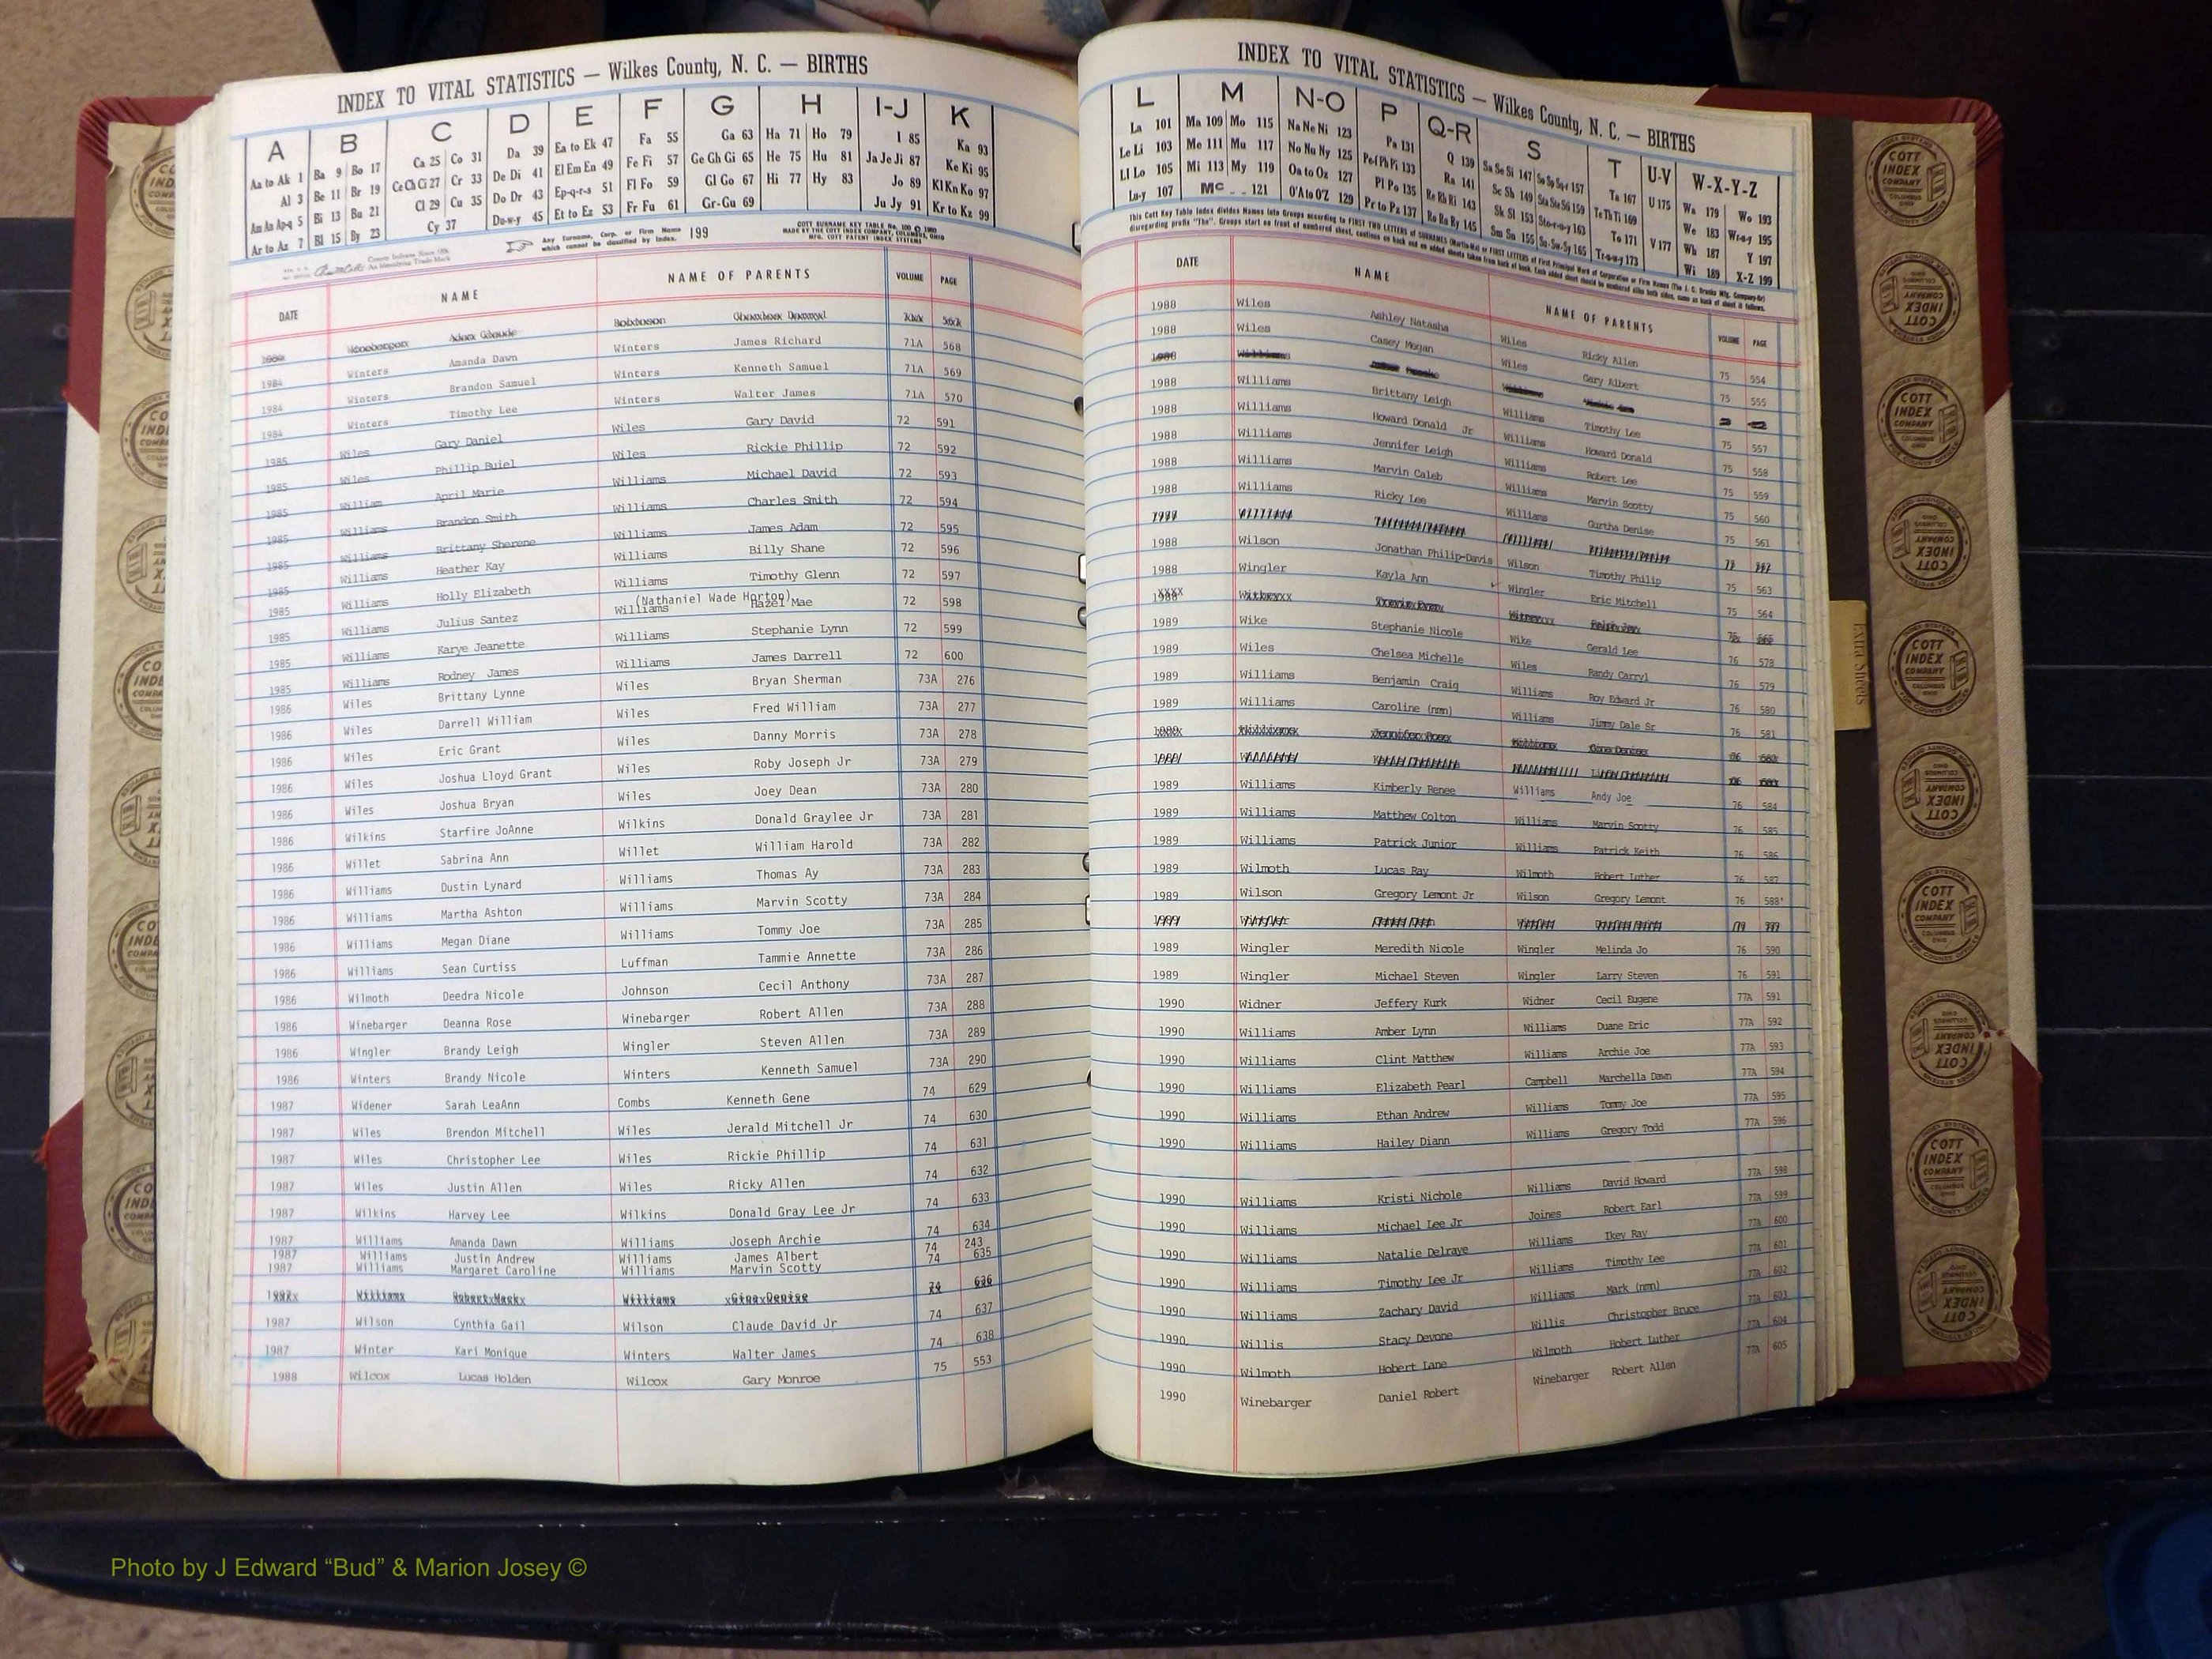 INDEX TO VITAL STATISTICS — Wilkes County, N. C. — BIRTHS
A B C D E F G H I-J K
Aa to Ak 1 Ba 9 Bo 17 Ca 25 Co 31 Da 39 Ea to Ek 47 Fa 55 Ga 63 Ha 71 Ho 79 I 85 Ka 93
Al 3 Be 11 Br 19 Ce Ch Ci 27 Cr 33 De Di 41 El Em En 49 Fe Fi 57 Ge Gh Gi 65 He 75 Hu 81 Ja Je Ji 87 Ke Ki 95
Am An Ap-q 5 Bi 13 Bu 21 Cl 29 Cu 35 Do Dr 43 Ep-q-r-s 51 Fl Fo 59 Gl Go 67 Hi 77 Hy 83 Jo 89 Kl Kn Ko 97
Ar to Az 7 Bl 15 By 23 Cy 37 Du-w-y 45 Et to Ez 53 Fr Fu 61 Gr-Gu 69 Ju Jy 91 Kr to Kz 99
Any Surname, Corp. or Firm Name which cannot be classified by Index. 199
COTT SURNAME KEY TABLE No. 100 © 1960
MADE BY THE COTT INDEX COMPANY, COLUMBUS, OHIO
MFG. COTT PATENT INDEX SYSTEMS
DATE NAME NAME OF PARENTS VOLUME PAGE
1984 Winters Amanda Dawn Winters James Richard 71A 568
1984 Winters Brandon Samuel Winters Kenneth Samuel 71A 569
1984 Winters Timothy Lee Winters Walter James 71A 570
1985 Wiles Gary Daniel Wiles Gary David 72 591
1985 Wiles Phillip Buiel Wiles Rickie Phillip 72 592
1985 William April Marie Williams Michael David 72 593
1985 Williams Brandon Smith Williams Charles Smith 72 594
1985 Williams Brittany Sherene Williams James Adam 72 595
1985 Williams Heather Kay Williams Billy Shane 72 596
1985 Williams Holly Elizabeth Williams Timothy Glenn 72 597
(Nathaniel Wade Horton)
1985 Williams Julius Santez Williams Hazel Mae 72 598
1985 Williams Karye Jeanette Williams Stephanie Lynn 72 599
1985 Williams Rodney James Williams James Darrell 72 600
1986 Wiles Brittany Lynne Wiles Bryan Sherman 73A 276
1986 Wiles Darrell William Wiles Fred William 73A 277
1986 Wiles Eric Grant Wiles Danny Morris 73A 278
1986 Wiles Joshua Lloyd Grant Wiles Roby Joseph Jr 73A 279
1986 Wiles Joshua Bryan Wiles Joey Dean 73A 280
1986 Wilkins Starfire JoAnne Wilkins Donald Graylee Jr 73A 281
1986 Willet Sabrina Ann Willet William Harold 73A 282
1986 Williams Dustin Lynard Williams Thomas Ay 73A 283
1986 Williams Martha Ashton Williams Marvin Scotty 73A 284
1986 Williams Megan Diane Williams Tommy Joe 73A 285
1986 Williams Sean Curtiss Luffman Tammie Annette 73A 286
1986 Wilmoth Deedra Nicole Johnson Cecil Anthony 73A 287
1986 Winebarger Deanna Rose Winebarger Robert Allen 73A 288
1986 Wingler Brandy Leigh Wingler Steven Allen 73A 289
1986 Winters Brandy Nicole Winters Kenneth Samuel 73A 290
1987 Widener Sarah LeaAnn Combs Kenneth Gene 74 629
1987 Wiles Brendon Mitchell Wiles Jerald Mitchell Jr 74 630
1987 Wiles Christopher Lee Wiles Rickie Phillip 74 631
1987 Wiles Justin Allen Wiles Ricky Allen 74 632
1987 Wilkins Harvey Lee Wilkins Donald Gray Lee Jr 74 633
1987 Williams Amanda Dawn Williams Joseph Archie 74 634
1987 Williams Justin Andrew Williams James Albert 74 243
1987 Williams Margaret Caroline Williams Marvin Scotty 74 635
1987 Wilson Cynthia Gail Wilson Claude David Jr 74 637
1987 Winter Kari Monique Winters Walter James 74 638
1988 Wilcox Lucas Holden Wilcox Gary Monroe 75 553
INDEX TO VITAL STATISTICS — Wilkes County, N. C. — BIRTHS
L M N-O P Q-R S T U-V W-X-Y-Z
La 101 Ma 109 Mo 115 Na Ne Ni 123 Pa 131 Q 139 Sa Se Si 147 So Sp Sq-r 157 Ta 167 U 175 Wa 179 Wo 193
Le Li 103 Me 111 Mu 117 No Nu Ny 125 Pe-f Ph Pi 133 Ra 141 Sc Sh 149 Sta Ste Sti 159 Te Th Ti 169 We 183 Wr-u-y 195
Ll Lo 105 Mi 113 My 119 Oa to Oz 127 Pl Po 135 Re Rh Ri 143 Sk Sl 153 Sto-r-u-y 163 To 171 V 177 Wh 187 Y 197
Lu-y 107 Mc 121 O'A to O'Z 129 Pr to Pz 137 Ro Ru Ry 145 Sm Sn 155 Su-Sw-Sy 165 Tr-u-w-y 173 Wi 189 X-Z 199
DATE NAME NAME OF PARENTS VOLUME PAGE
1988 Wiles Ashley Natasha Wiles Ricky Allen 75 554
1988 Wiles Casey Megan Wiles Gary Albert 75 555
1988 Williams Brittany Leigh Williams Timothy Lee 75 557
1988 Williams Howard Donald Jr Williams Howard Donald 75 558
1988 Williams Jennifer Leigh Williams Robert Lee 75 559
1988 Williams Marvin Caleb Williams Marvin Scotty 75 560
1988 Williams Ricky Lee Williams Gurtha Denise 75 561
1988 Wilson Jonathan Philip-Davis Wilson Timothy Philip 75 563
1988 Wingler Kayla Ann Wingler Eric Mitchell 75 564
1989 Wike Stephanie Nicole Wike Gerald Lee 76 578
1989 Wiles Chelsea Michelle Wiles Randy Carryl 76 579
1989 Williams Benjamin Craig Williams Roy Edward Jr 76 580
1989 Williams Caroline (nmn) Williams Jimmy Dale Sr 76 581
1989 Williams Kimberly Renee Williams Andy Joe 76 584
1989 Williams Matthew Colton Williams Marvin Scotty 76 585
1989 Williams Patrick Junior Williams Patrick Keith 76 586
1989 Wilmoth Lucas Ray Wilmoth Hobert Luther 76 587
1989 Wilson Gregory Lemont Jr Wilson Gregory Lemont 76 588
1989 Wingler Meredith Nicole Wingler Melinda Jo 76 590
1989 Wingler Michael Steven Wingler Larry Steven 76 591
1990 Widner Jeffery Kurk Widner Cecil Eugene 77A 591
1990 Williams Amber Lynn Williams Duane Eric 77A 592
1990 Williams Clint Matthew Williams Archie Joe 77A 593
1990 Williams Elizabeth Pearl Campbell Marchella Dawn 77A 594
1990 Williams Ethan Andrew Williams Tommy Joe 77A 595
1990 Williams Hailey Diann Williams Gregory Todd 77A 596
1990 Williams Kristi Nichole Williams David Howard 77A 598
1990 Williams Michael Lee Jr Joines Robert Earl 77A 599
1990 Williams Natalie Delraye Williams Ikey Ray 77A 600
1990 Williams Timothy Lee Jr Williams Timothy Lee 77A 601
1990 Williams Zachary David Williams Mark (nmn) 77A 602
1990 Willis Stacy Devone Willis Christopher Bruce 77A 603
1990 Wilmoth Hobert Lane Wilmoth Hobert Luther 77A 604
1990 Winebarger Daniel Robert Winebarger Robert Allen 77A 605
Extra Sheets
COTT INDEX COMPANY
Photo by J Edward “Bud” & Marion Josey ©